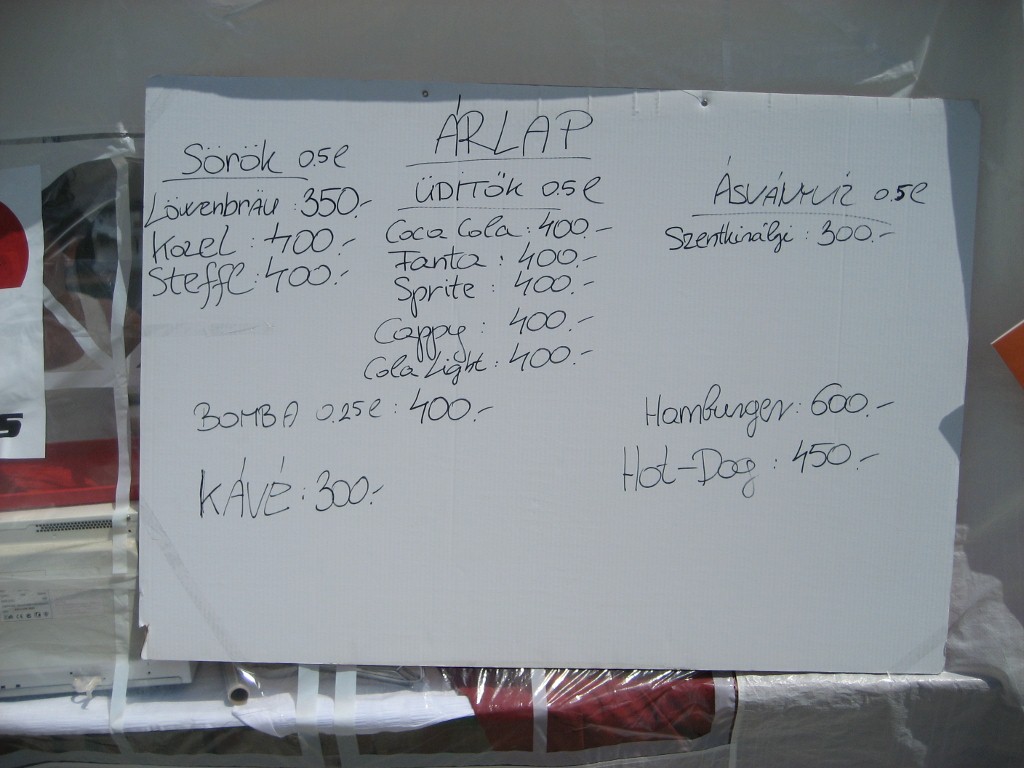 ÁRLAP
Sörök 0.5l
Löwenbräu : 350.-
Kozel : 400.-
Steffl : 400.-
ÜDÍTŐK 0.5l
Coca Cola : 400.-
Fanta : 400.-
Sprite : 400.-
Cappy : 400.-
Cola Light : 400.-
ÁSVÁNYVÍZ 0.5l
Szentkirályi : 300.-
BOMBA 0.25l : 400.-
KÁVÉ : 300.-
Hamburger : 600.-
Hot-Dog : 450.-